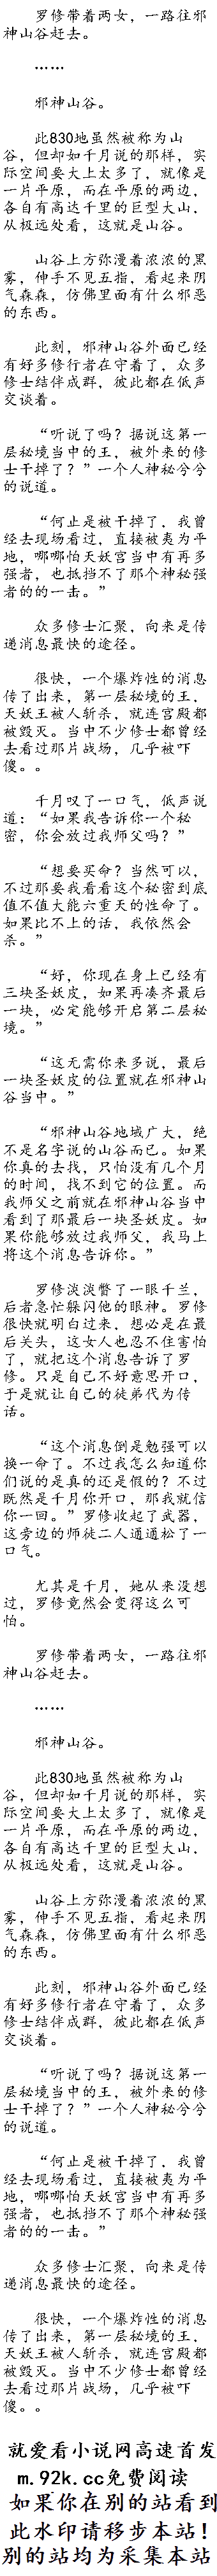 罗修带着两女，一路往邪
神山谷赶去。
……
邪神山谷。
此830地虽然被称为山
谷，但却如千月说的那样，实
际空间要大上太多了，就像是
一片平原，而在平原的两边，
各自有高达千里的巨型大山，
从极远处看，这就是山谷。
山谷上方弥漫着浓浓的黑
雾，伸手不见五指，看起来阴
气森森，仿佛里面有什么邪恶
的东西。
此刻，邪神山谷外面已经
有好多修行者在守着了，众多
修士结伴成群，彼此都在低声
交谈着。
“听说了吗？据说这第一
层秘境当中的王，被外来的修
士干掉了？”一个人神秘兮兮
的说道。
“何止是被干掉了，我曾
经去现场看过，直接被夷为平
地，哪哪怕天妖宫当中有再多
强者，也抵挡不了那个神秘强
者的的一击。”
众多修士汇聚，向来是传
递消息最快的途径。
很快，一个爆炸性的消息
传了出来，第一层秘境的王，
天妖王被人斩杀，就连宫殿都
被毁灭。当中不少修士都曾经
去看过那片战场，几乎被吓
傻。。
千月叹了一口气，低声说
道：“如果我告诉你一个秘
密，你会放过我师父吗？”
“想要买命？当然可以，
不过那要我看看这个秘密到底
值不值大能六重天的性命了。
如果比不上的话，我依然会
杀。”
“好，你现在身上已经有
三块圣妖皮，如果再凑齐最后
一块，必定能够开启第二层秘
境。”
“这无需你来多说，最后
一块圣妖皮的位置就在邪神山
谷当中。”
“邪神山谷地域广大，绝
不是名字说的山谷而已。如果
你真的去找，只怕没有几个月
的时间，找不到它的位置。而
我师父之前就在邪神山谷当中
看到了那最后一块圣妖皮。如
果你能够放过我师父，我马上
将这个消息告诉你。”
罗修淡淡瞥了一眼千兰，
后者急忙躲闪他的眼神。罗修
很快就明白过来，想必是在最
后关头，这女人也忍不住害怕
了，就把这个消息告诉了罗
修。只是自己不好意思开口，
于是就让自己的徒弟代为传
话。
“这个消息倒是勉强可以
换一命了。不过我怎么知道你
们说的是真的还是假的？不过
既然是千月你开口，那我就信
你一回。”罗修收起了武器，
这旁边的师徒二人通通松了一
口气。
尤其是千月，她从来没想
过，罗修竟然会变得这么可
怕。
罗修带着两女，一路往邪
神山谷赶去。
……
邪神山谷。
此830地虽然被称为山
谷，但却如千月说的那样，实
际空间要大上太多了，就像是
一片平原，而在平原的两边，
各自有高达千里的巨型大山，
从极远处看，这就是山谷。
山谷上方弥漫着浓浓的黑
雾，伸手不见五指，看起来阴
气森森，仿佛里面有什么邪恶
的东西。
此刻，邪神山谷外面已经
有好多修行者在守着了，众多
修士结伴成群，彼此都在低声
交谈着。
“听说了吗？据说这第一
层秘境当中的王，被外来的修
士干掉了？”一个人神秘兮兮
的说道。
“何止是被干掉了，我曾
经去现场看过，直接被夷为平
地，哪哪怕天妖宫当中有再多
强者，也抵挡不了那个神秘强
者的的一击。”
众多修士汇聚，向来是传
递消息最快的途径。
很快，一个爆炸性的消息
传了出来，第一层秘境的王，
天妖王被人斩杀，就连宫殿都
被毁灭。当中不少修士都曾经
去看过那片战场，几乎被吓
傻。。
就爱看小说网高速首发
m.92k.cc免费阅读
如果你在别的站看到
此水印请移步本站！
别的站均为采集本站